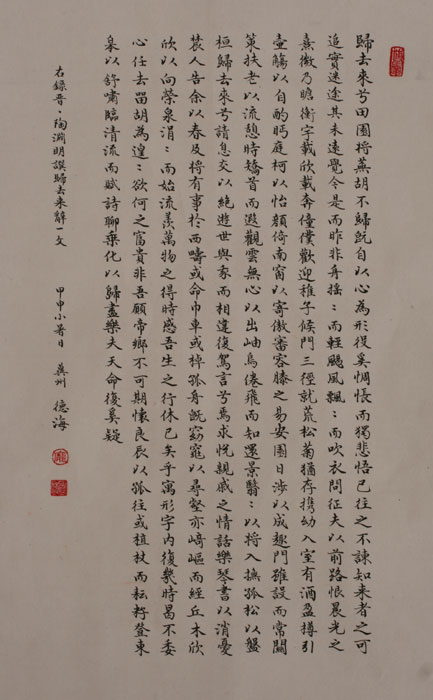 歸去來兮田園將蕪胡不歸既自以心為形役奚惆悵而獨悲悟已往之不諫知來者之可
追實迷途其未遠覺今是而昨非舟搖:而輕颺風飄:而吹衣問征夫以前路恨晨光之
熹微乃瞻衡宇載欣載奔僮僕歡迎稚子候門三徑就荒松菊猶存携幼入室有酒盈罇引
壺觴以自酌眄庭柯以怡顏倚南窗以寄傲審容膝之易安園日涉以成趣門雖設而常關
策扶老以流憩時矯首而遐觀雲無心以出岫鳥倦飛而知還景翳:以將入撫孤松以盤
桓歸去來兮請息交以絕遊世與我而相違復駕言兮焉求悅親戚之情話樂琴書以消憂
農人告余以春及將有事於西疇或命巾車或棹孤舟既窈窕以尋壑亦崎嶇而經丘木欣
欣以向榮泉涓:而始流羨萬物之得時感吾生之行休已矣乎寓形宇內復幾時曷不委
心任去留胡為遑:欲何之富貴非吾願帝鄉不可期懷良辰以孤往或植杖而耘耔登東
皋以舒嘯臨清流而賦詩聊乘化以歸盡樂夫天命復奚疑
右錄晉·陶淵明撰歸去來辭一文 甲申小暑日 冀州 德海